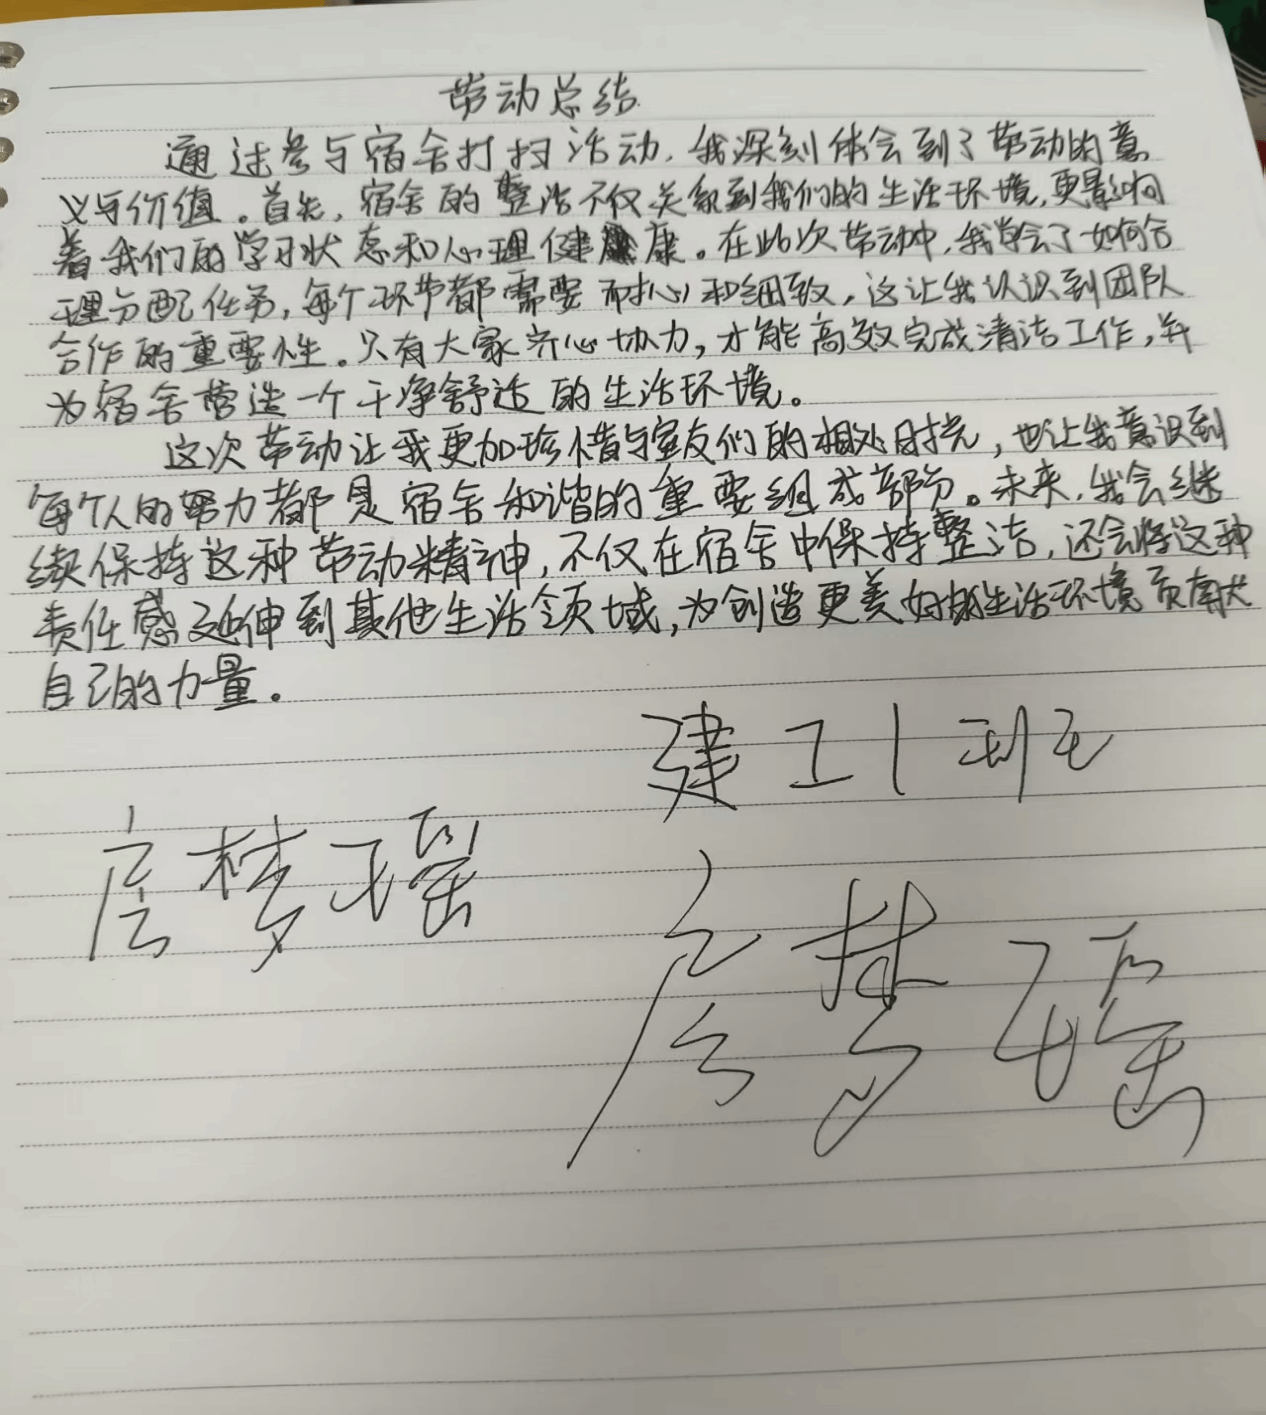 带动总结
通过参与宿舍打扫活动,我深刻体会到了带动的意
义与价值。首先,宿舍的整洁不仅关系到我们的生活环境,更影响
着我们的学习状态和心理健康。在此次带动中,我学会了如何合
理分配任务,每个环节都需要耐心和细致,这让我认识到团队
合作的重要性。只有大家齐心协力,才能高效完成清洁工作,并
为宿舍营造一个干净舒适的生活环境。
这次带动让我更加珍惜与室友们的相处时光,也让我意识到
每个人的努力都是宿舍和谐的重要组成部分。未来,我会继
续保持这种带动精神,不仅在宿舍中保持整洁,还会将这种
责任感延伸到其他生活领域,为创造更美好的生活环境贡献
自己的力量。
建工1班
房梦瑶
房梦瑶